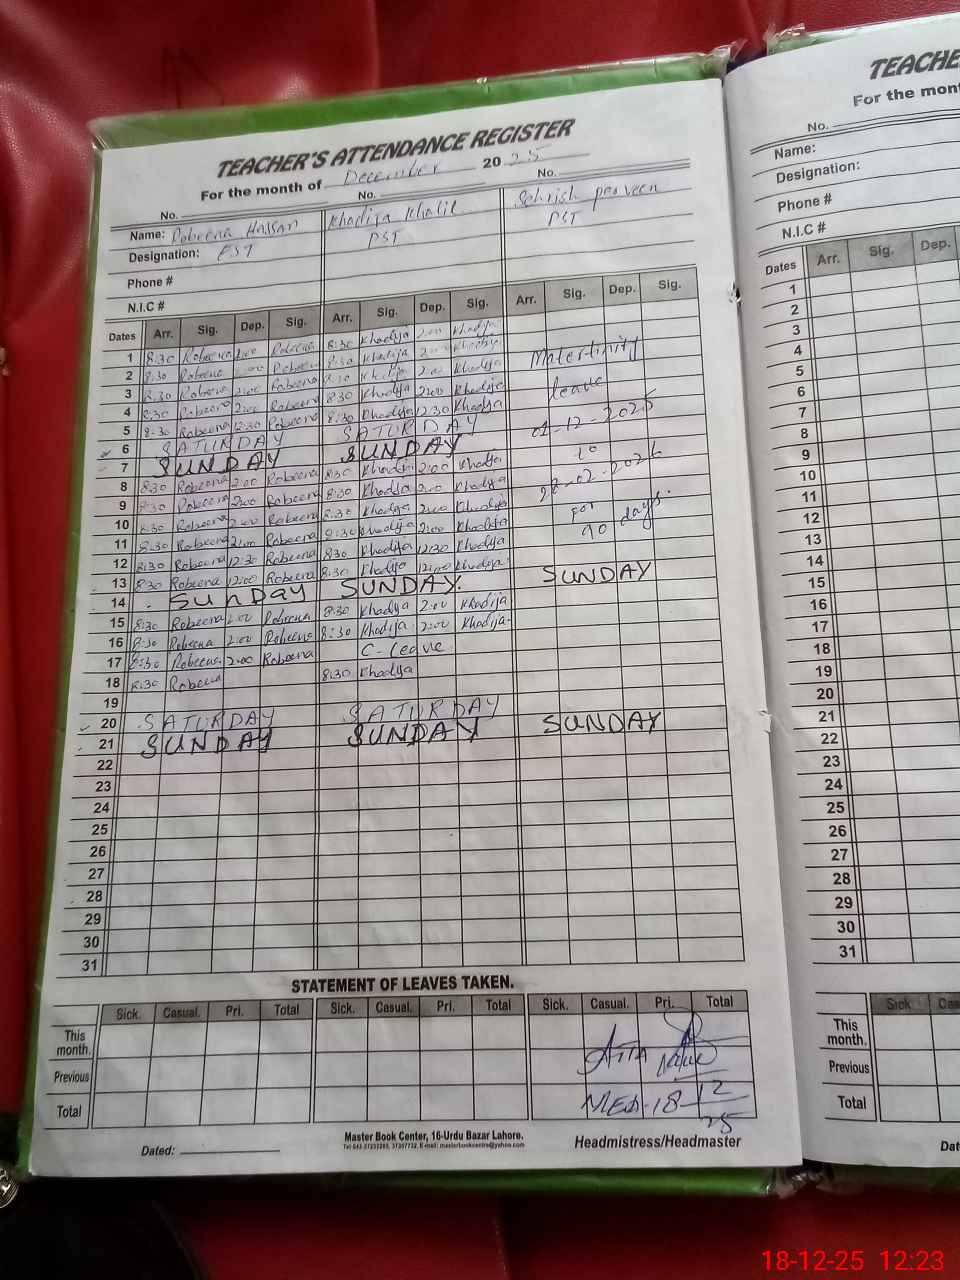 TEACHER'S ATTENDANCE REGISTER
For the month of December 2025
No. No. No.
Name: Robeena Hassan Khadija Khalil Sehrish parveen
Designation: EST PST PST
Phone #
N.I.C #
Dates Arr. Sig. Dep. Sig. Arr. Sig. Dep. Sig. Arr. Sig. Dep. Sig.
1 8:30 Robeena 2:00 Robeena 8:30 Khadija 2:00 Khadija
2 8:30 Robeena 2:00 Robeena 8:30 Khadija 2:00 Khadija
3 8:30 Robeena 2:00 Robeena 8:30 Khadija 2:00 Khadija
4 8:30 Robeena 2:00 Robeena 8:30 Khadija 2:00 Khadija
5 8:30 Robeena 12:30 Robeena 8:30 Khadija 12:30 Khadija
6 SATURDAY SATURDAY
7 SUNDAY SUNDAY
Matertinity
leave
01-12-2025
to
28-02-2026
For
90 days.
8 8:30 Robeena 2:00 Robeena 8:30 Khadija 2:00 Khadija
9 8:30 Robeena 2:00 Robeena 8:30 Khadija 2:00 Khadija
10 8:30 Robeena 2:00 Robeena 8:30 Khadija 2:00 Khadija
11 8:30 Robeena 2:00 Robeena 8:30 Khadija 2:00 Khadija
12 8:30 Robeena 12:30 Robeena 8:30 Khadija 12:30 Khadija
13 8:30 Robeena 12:00 Robeena 8:30 Khadija 12:00 Khadija
14 SUNDAY SUNDAY. SUNDAY
15 8:30 Robeena 2:00 Robeena 8:30 Khadija 2:00 Khadija
16 8:30 Robeena 2:00 Robeena 8:30 Khadija 2:00 Khadija
17 8:30 Robeena 2:00 Robeena C-leave
18 8:30 Robeena 8:30 Khadija
19
20 SATURDAY SATURDAY
21 SUNDAY SUNDAY SUNDAY
22
23
24
25
26
27
28
29
30
31
STATEMENT OF LEAVES TAKEN.
Sick. Casual. Pri. Total Sick. Casual. Pri. Total Sick. Casual. Pri. Total
This month.
Previous
Total
MEA-18-12
25
Master Book Center, 16-Urdu Bazar Lahore.
Tel 042-37232265, 37247732, E-mail: masterbookcentre@yahoo.com
Dated: Headmistress/Headmaster
TEACHE
For the mont
No.
Name:
Designation:
Phone #
N.I.C #
Dates Arr. Sig. Dep.
1
2
3
4
5
6
7
8
9
10
11
12
13
14
15
16
17
18
19
20
21
22
23
24
25
26
27
28
29
30
31
Sick Cas
This month.
Previous
Total
Dat
18-12-25 12:23